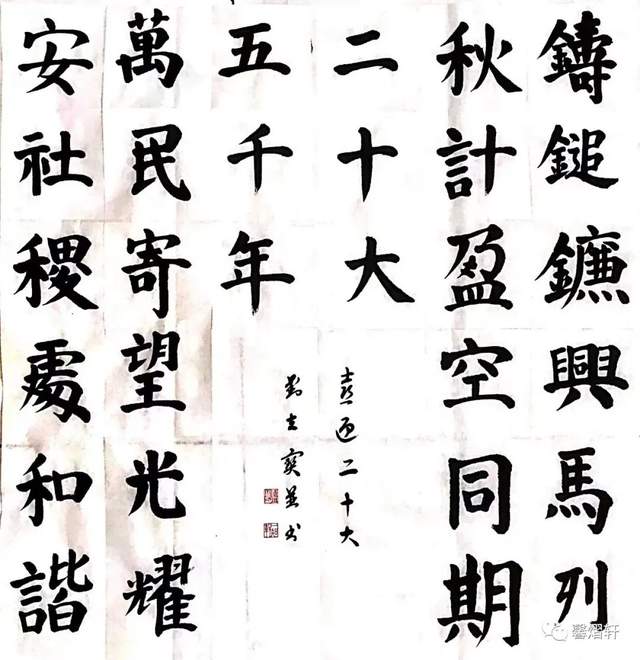 鑄鎚鐮興馬列
秋計盈空同期
二十大
喜迎二十大
五千年
劉立寶並书
萬民寄望光耀
安社稷處和諧
馨熠轩